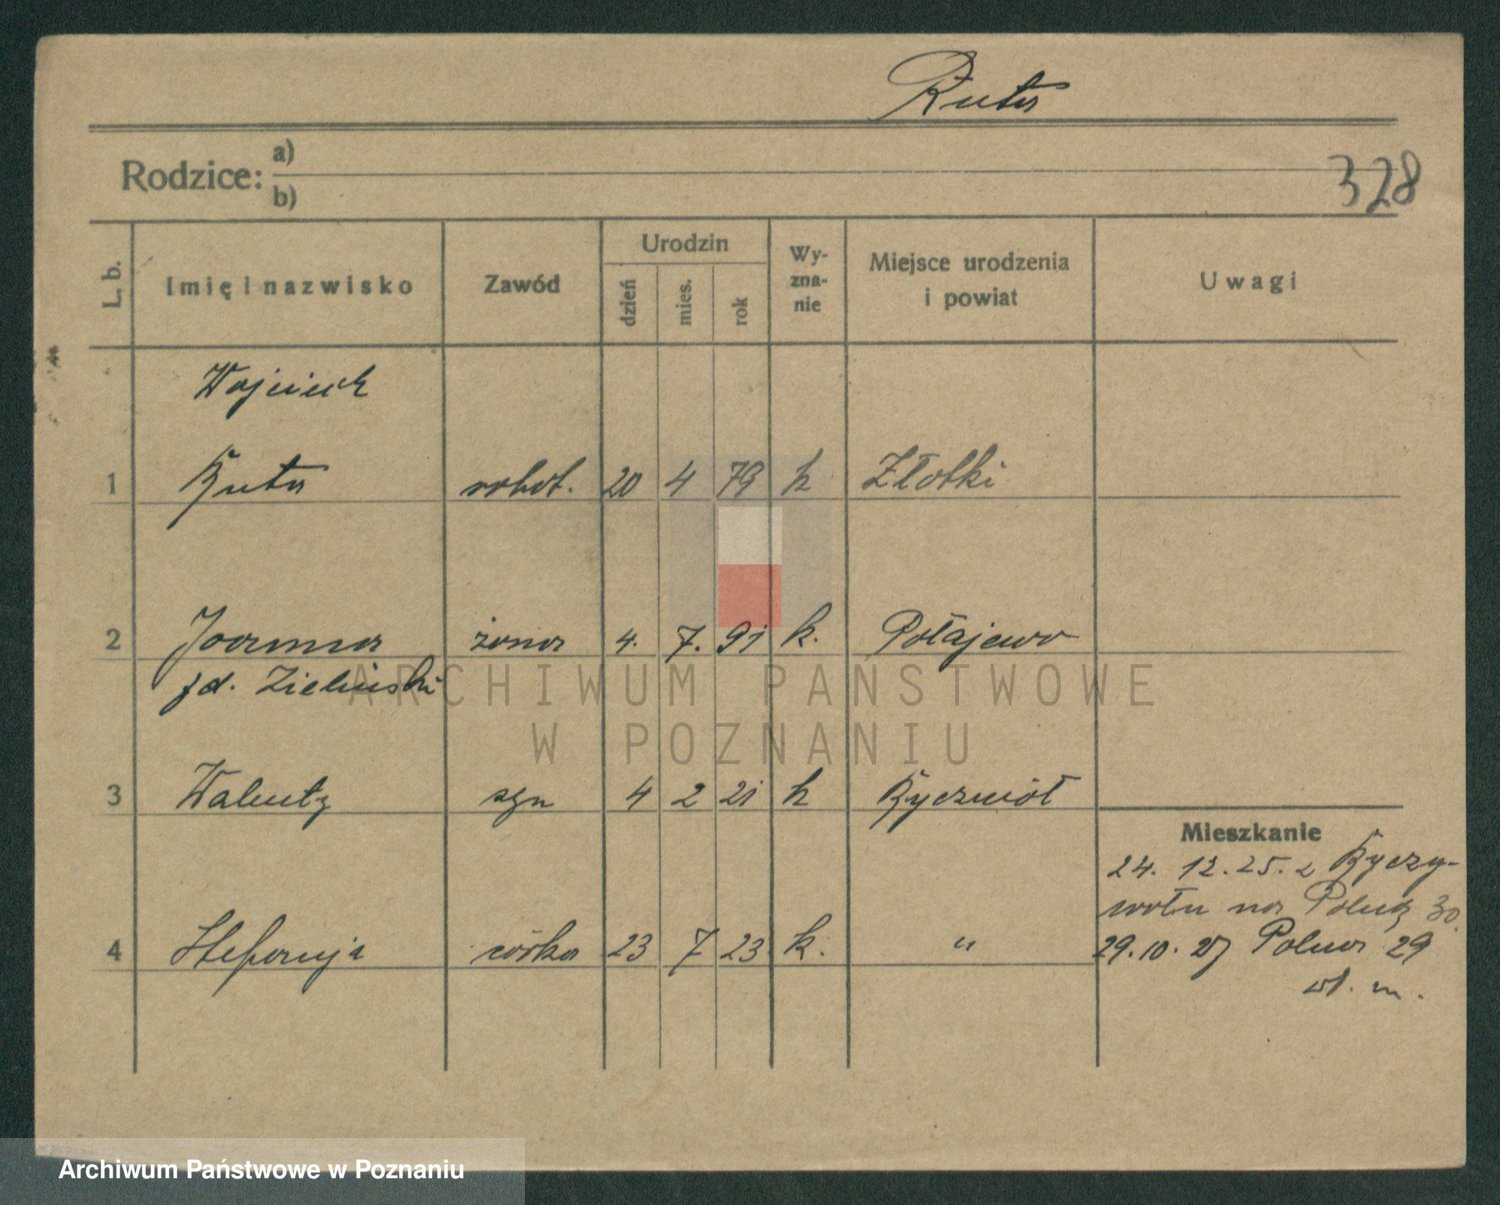 Ruta
Rodzice: a)
b)
328
L. b.
Imię i nazwisko
Zawód
Urodzin
dzień
mies.
rok
Wy-
zna-
nie
Miejsce urodzenia
i powiat
Uwagi
Wojciech
1 Ruta robot. 20 4 79 k Złotki
2 Joanna żona 4. 7. 91 k. Połajewo
Zieliński
3 Walenty syn 4 2 21 k Ryczwół
Mieszkanie
24. 12. 25. z Ryczy-
wołu na 30.
4 Stefanja córka 23 7 23 k. "
29. 10. 27 29
w. m.
ARCHIWUM PAŃSTWOWE
W POZNANIU
Archiwum Państwowe w Poznaniu